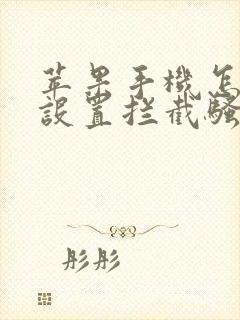 苹果手機怎
設置拦截騷
彤彤